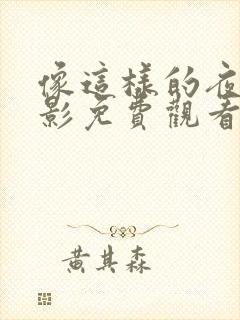 像這樣的夜
影免費觀看
黃其森